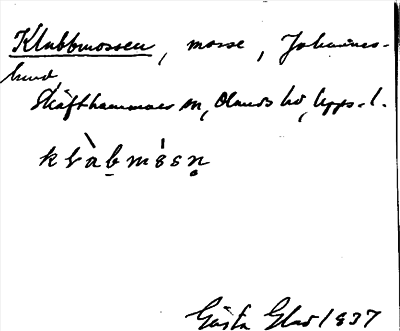 Klubbmossen, mosse, Johannes-
lund,
Skäfthammars sn, Olands hd, Upps. l.
klàbmósn̥
Gösta Glad 1937